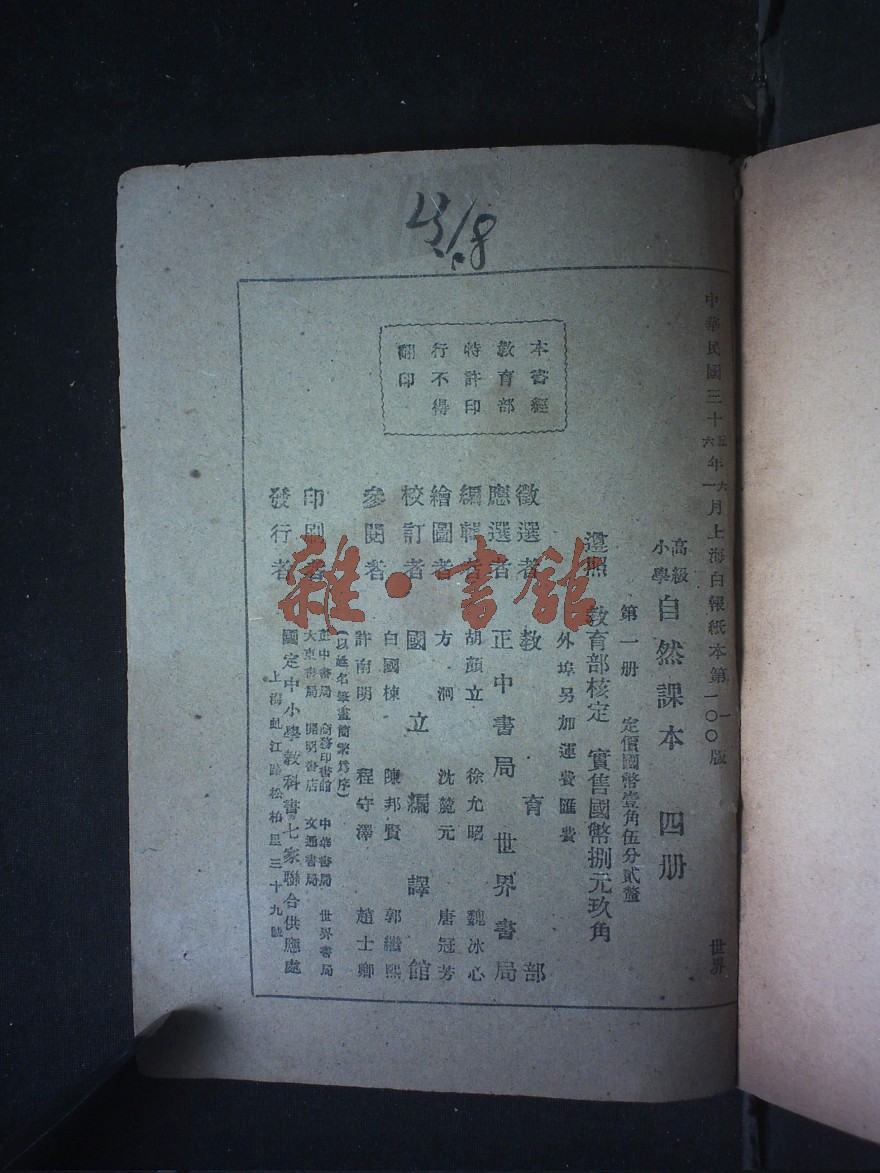 中華民國三十五年六月上海白報紙本第一版
六年一月 一〇〇版
世界
高級小學 自然課本 四册
第一册 定價國幣壹角伍分貳釐
遵照 教育部核定 實售國幣捌元玖角
外埠另加運費匯費
徵選者 教育部
應選者 正中書局 世界書局
編輯者 胡顏立 徐允昭 魏冰心
繪圖者 方洞 沈麓元 唐冠芳
校訂者 國立編譯館
參閱者 白國棟 陳邦賢 郭繼熙
許南明 程守澤 趙士卿
(以姓名筆畫簡繁爲序)
印刷者 正中書局 商務印書館 中華書局 世界書局
大東書局 開明書店 文通書局
發行者 國定中小學教科書七家聯合供應處
上海虬江路松柏里三十九號
本書經
教育部
特許印
行不得
翻印
雜·書館